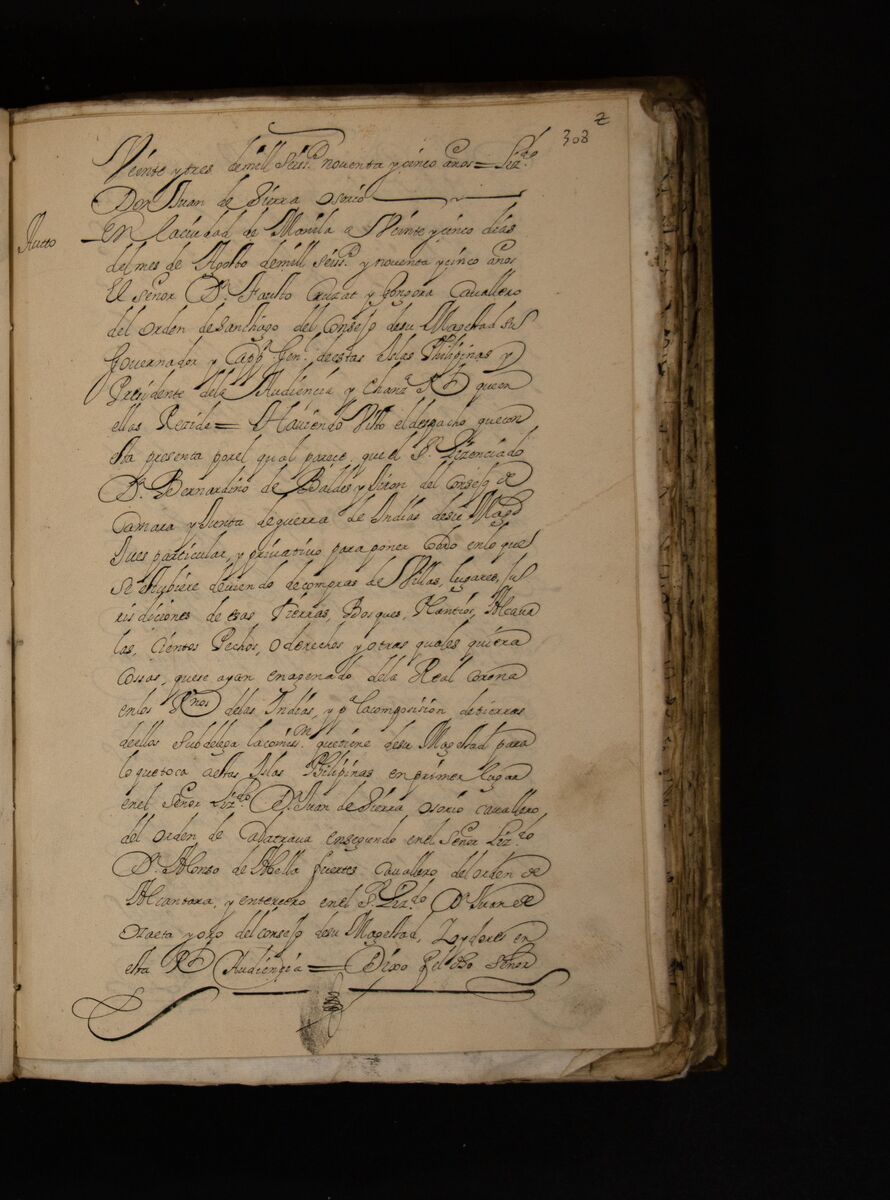 308 2
Veinte y tres de mill seisˢ noventa y cinco años = Lizᵈᵒ
Don Juan de Sierra osorio
Aucto
En la ciudad de Manila a Veinte y cinco dias
del mes de Agosto de mill seisˢ y noventa y cinco años
El señor Dⁿ Fausto Cruzat y gongora Cavallero
del orden de Santhiago del Consejo de su Magestad su
Governador y Capⁿ Genˡ de estas Islas Philipinas y
Presidente dela Audiencia y Chanzª Rˡ que en
ellas Reside = Haviendo Visto el despacho que con
sta presenta por el qual parece que el Sʳ Lizenciado
Dⁿ Bernardino de Baldes y Jiron del Consejo de
Camara y Junta de guerra de Indias de su Magᵈ
Jues particular, y privativo para poner cobro en lo que
se estubiere deviendo de compras de Villas, lugares, Ju
risdiciones de esas Tierras, Bosques, Plantios, Alcava
las, Cientos Pechos, o derechos y otras quales quiera
Cossas, que se ayan enagenado dela Real Corona
en los Rⁿᵒˢ delas Indias, y pª la composision de tierras
de ellos subdelega la comisⁿ que tiene de su Magestad para
lo que toca a estas Islas Philipinas en primer lugar
en el señor Lizᵈᵒ Dⁿ Juan de Sierra osorio cavallero
del orden de Calatrava en segundo en el señor Lizᵈᵒ
Dⁿ Alonso de Abella fuertes Cavallero del orden de
Alcantara, y en tercero en el Sʳ Lizᵈᵒ Dⁿ Juan de
Ozaeta y oro del consejo de su Magestad, Oydores en
esta Rˡ Audiencia = Dixo Señor